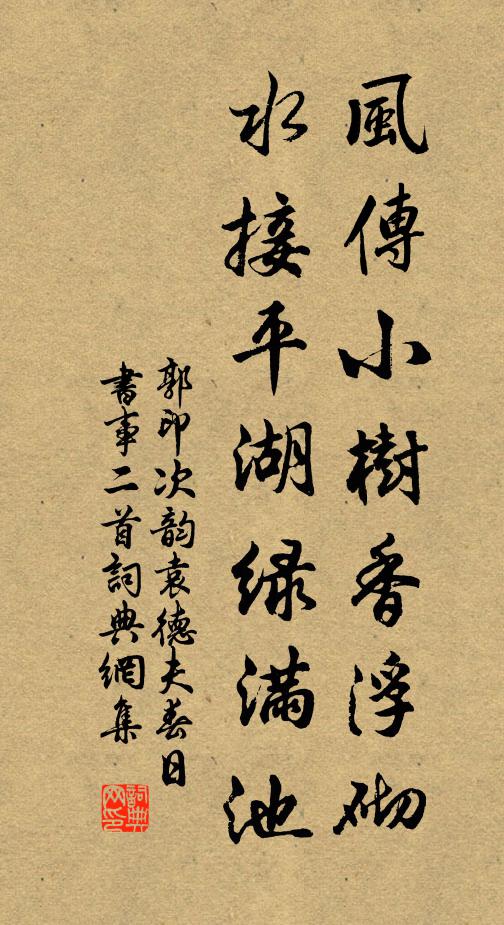 風傳小樹香浮砌
水接平湖緑滿池
郭印次韵袁德夫春日
書事二首詞典網集
詞典
网印